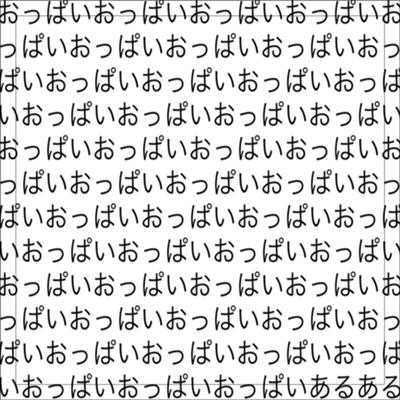 おっぱいおっぱいおっぱいおっぱいお
っぱいおっぱいおっぱいおっぱいおっ
ぱいおっぱいおっぱいおっぱいおっぱ
いおっぱいおっぱいおっぱいおっぱい
おっぱいおっぱいおっぱいおっぱいお
っぱいおっぱいおっぱいおっぱいおっ
ぱいおっぱいおっぱいおっぱいおっぱ
いおっぱいおっぱいおっぱいおっぱい
おっぱいおっぱいおっぱいおっぱいお
っぱいおっぱいおっぱいおっぱいおっ
ぱいおっぱいおっぱいおっぱいおっぱ
いおっぱいおっぱいおっぱいあるある